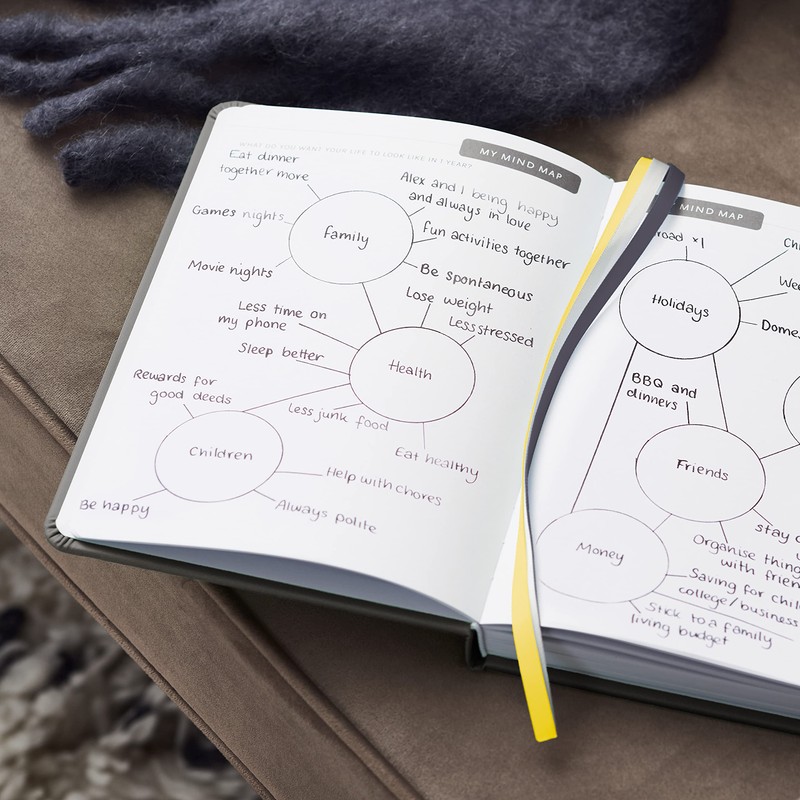 WHAT DO YOU WANT YOUR LIFE TO LOOK LIKE IN 1 YEAR?
MY MIND MAP
Eat dinner
together more
Alex and I being happy
and always in love
Games nights
Family
Fun activities together
Movie nights
Be spontaneous
Lose weight
Less time on
my phone
Less stressed
Sleep better
Health
Rewards for
good deeds
Less junk food
Eat healthy
Children
Help with chores
Be happy
Always polite
MIND MAP
road x1
Holidays
BBQ and
dinners
Friends
stay
Organise
with
Money
Saving for
college/business
Stick to a family
living budget